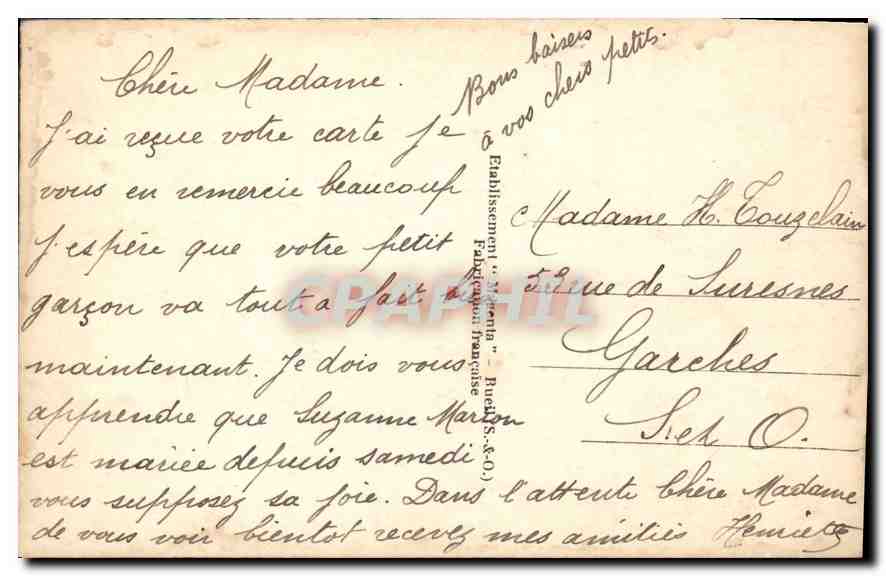 Chère Madame.
J'ai reçue votre carte Je
vous en remercie beaucoup
J'espère que votre petit
garçon va tout a fait bien
maintenant. Je dois vous
apprendre que Suzanne Marion
est mariée depuis samedi
vous supposez sa joie. Dans l'attente Chère Madame
de vous voir bientot recevez mes amitiés Henriette
Bons baisers
à vos chers petits.
Etablissement "Magenta" - Rueil (S.-&-O.)
Fabrication française
Madame H. Touzelain
rue de Suresnes
Garches
S. et O.
CPAPHIL